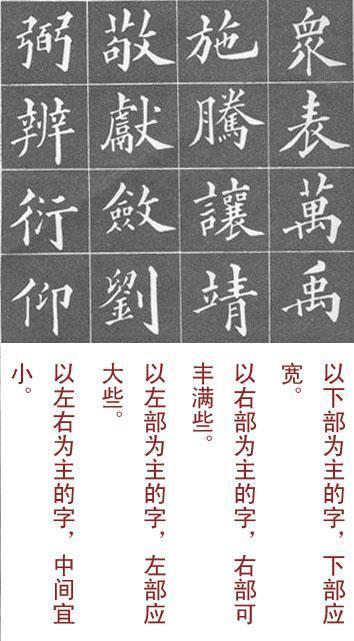 眾表萬禹
施騰讓靖
敬獻斂劉
弼辨衍仰
以下部为主的字，下部应
宽。
以右部为主的字，右部可
丰满些。
以左部为主的字，左部应
大些。
以左右为主的字，中间宜
小。